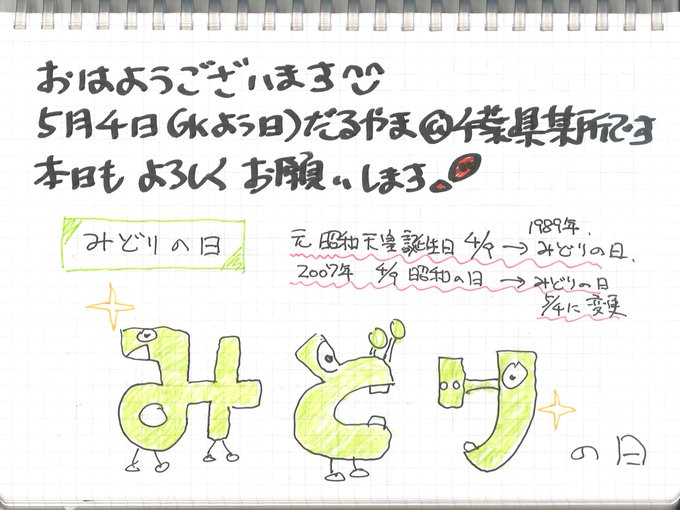 おはようございます^^
5月4日(水よう日)だるやま@千葉県某所です
本日も よろしく お願いします!
みどりの日
1989年.
元 昭和天皇誕生日 4/9 → みどりの日.
2007年 4/9 昭和の日 → みどりの日
5/4に変更
みどり
の日